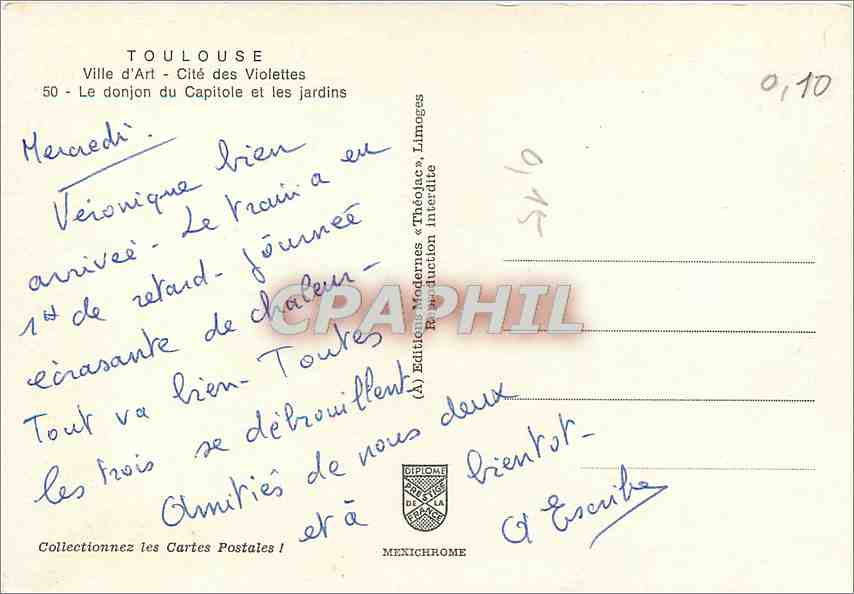 TOULOUSE
Ville d'Art - Cité des Violettes
50 - Le donjon du Capitole et les jardins
Mercredi.
Véronique bien
arrivée - Le train a eu
1H de retard - Journée
écrasante de chaleur -
Tout va bien - Toutes
les trois se débrouillent -
Amitiés de nous deux
et à bientot -
A Escribe
Collectionnez les Cartes Postales !
(A) Editions Modernes «Théojac», Limoges
Reproduction interdite
CPAPHIL
DIPLOME
PRESTIGE
DE LA
FRANCE
MEXICHROME
0,10
0,15